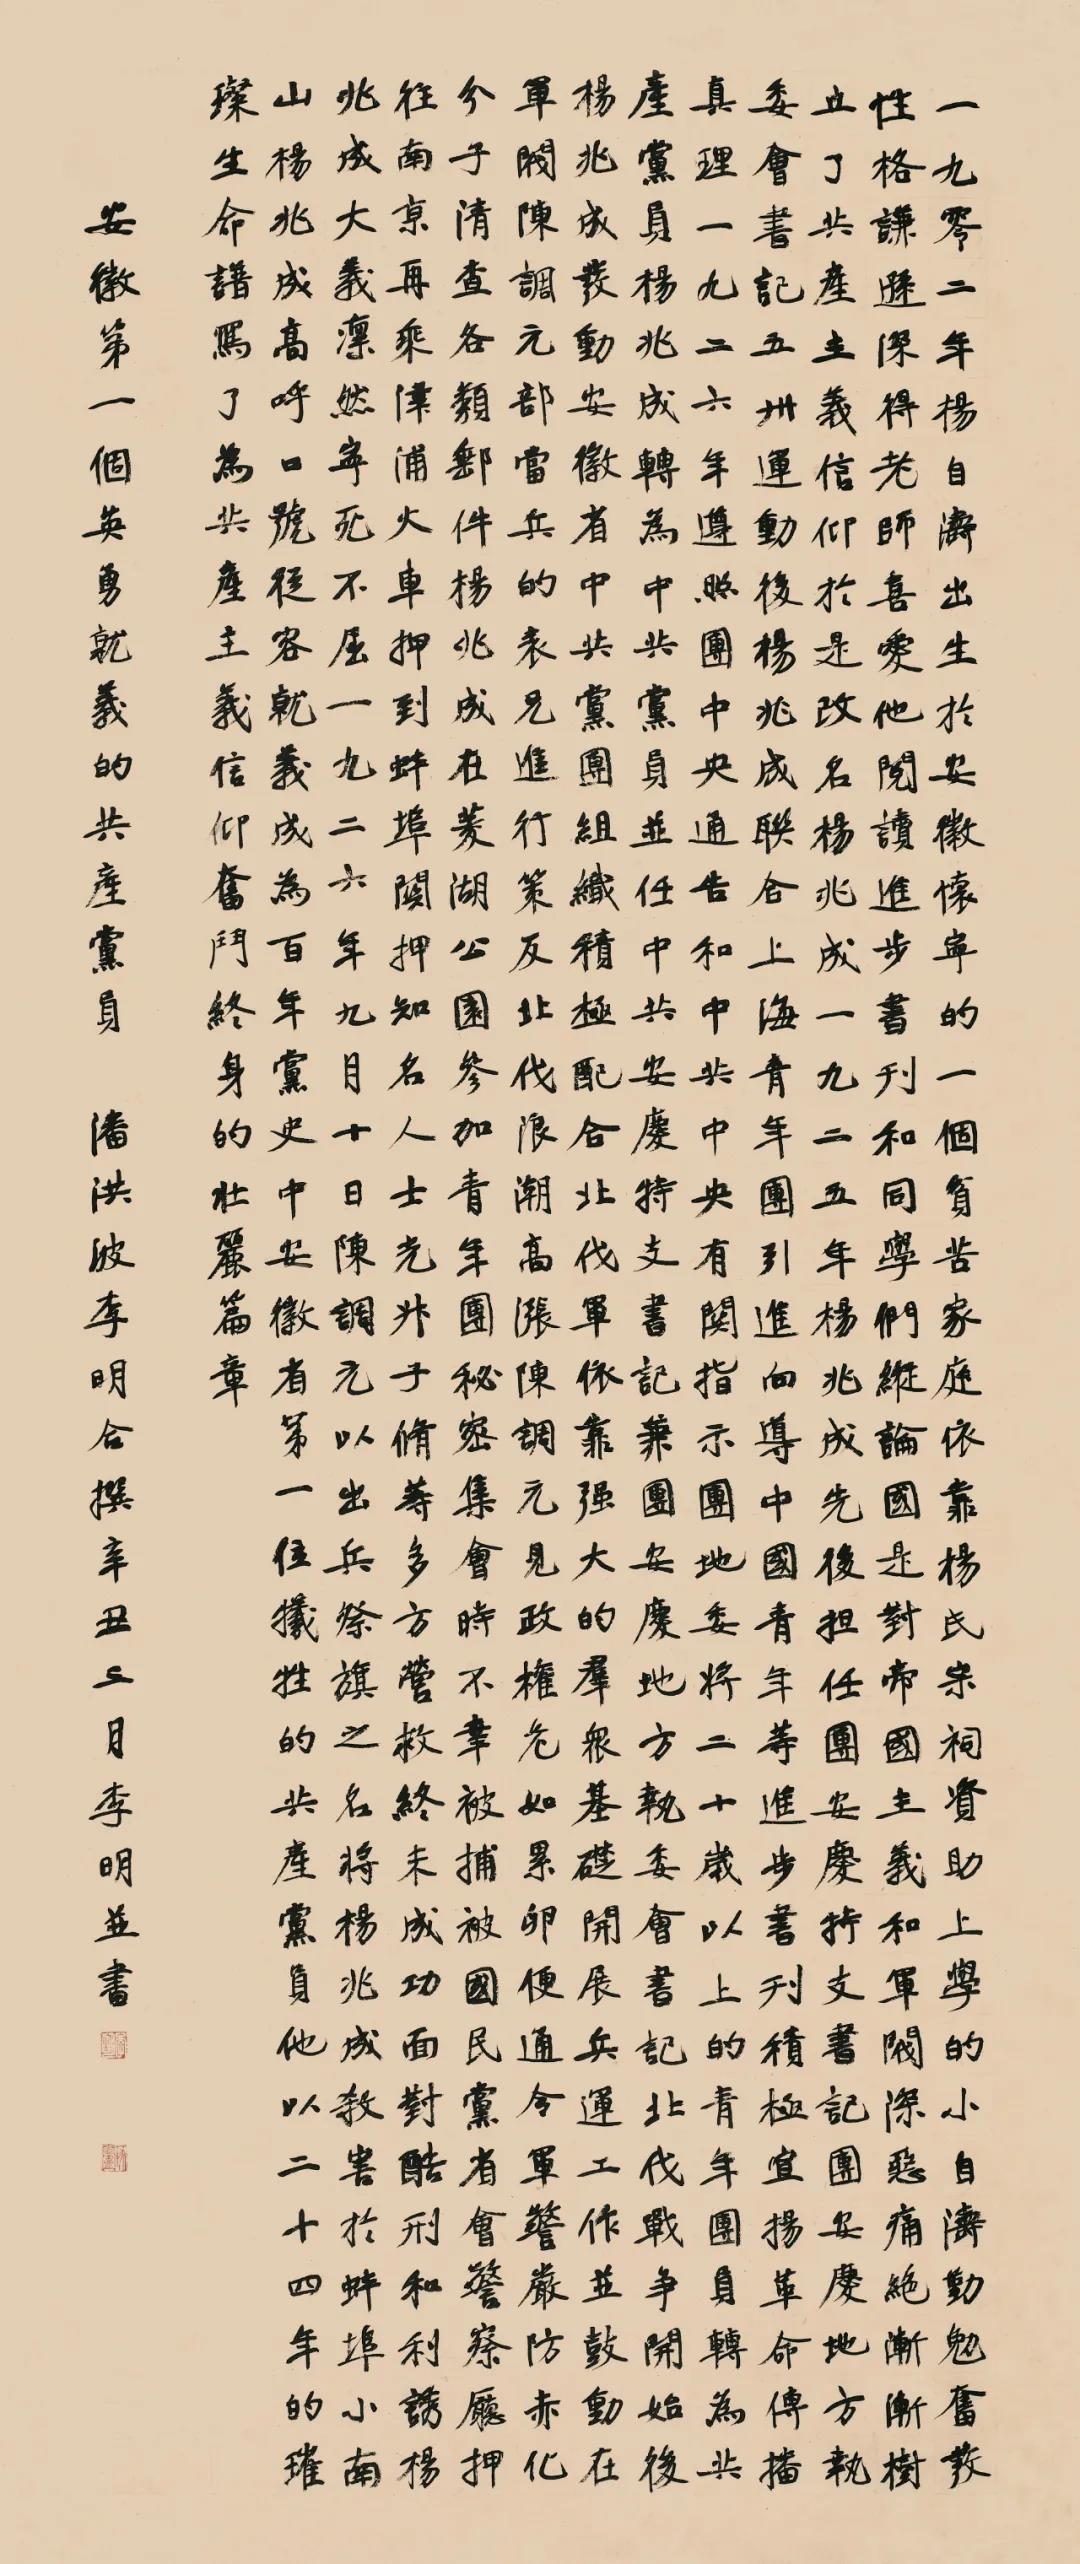 一九零二年楊自濤出生於安徽懷寧的一個貧苦家庭依靠楊氏宗祠資助上學的小自濤勤勉奮發
性格謙遜深得老師喜愛他閱讀進步書刊和同學們縱論國是對帝國主義和軍閥深惡痛絕漸漸樹
立了共產主義信仰於是改名楊兆成一九二五年楊兆成先後担任團安慶特支書記團安慶地方執
委會書記五卅運動後楊兆成聯合上海青年團引進向導中國青年等進步書刊積極宣揚革命傳播
真理一九二六年遵照團中央通告和中共中央有関指示團地委將二十歲以上的青年團員轉為共
產黨員楊兆成轉為中共黨員並任中共安慶特支書記兼團安慶地方執委會書記北伐戰争開始後
楊兆成發動安徽省中共黨團組織積極配合北伐軍依靠强大的羣衆基礎開展兵運工作並鼓動在
軍閥陳調元部當兵的表兄進行策反北伐浪潮高漲陳調元見政權危如累卵便通令軍警嚴防赤化
分子清查各類郵件楊兆成在菱湖公園參加青年團秘密集會時不幸被捕被國民黨省會警察廳押
往南京再乘津浦火車押到蚌埠関押知名人士光昇子脩等多方營救終未成功面對酷刑和利誘楊
兆成大義凛然寧死不屈一九二六年九月十日陳調元以出兵祭旗之名將楊兆成殺害於蚌埠小南
山楊兆成高呼口號從容就義成為百年黨史中安徽省第一位犧牲的共產黨員他以二十四年的璀
璨生命譜寫了為共產主義信仰奮鬥終身的壯麗篇章
安徽第一個英勇就義的共產黨員 潘洪波李明合撰辛丑二月李明並書